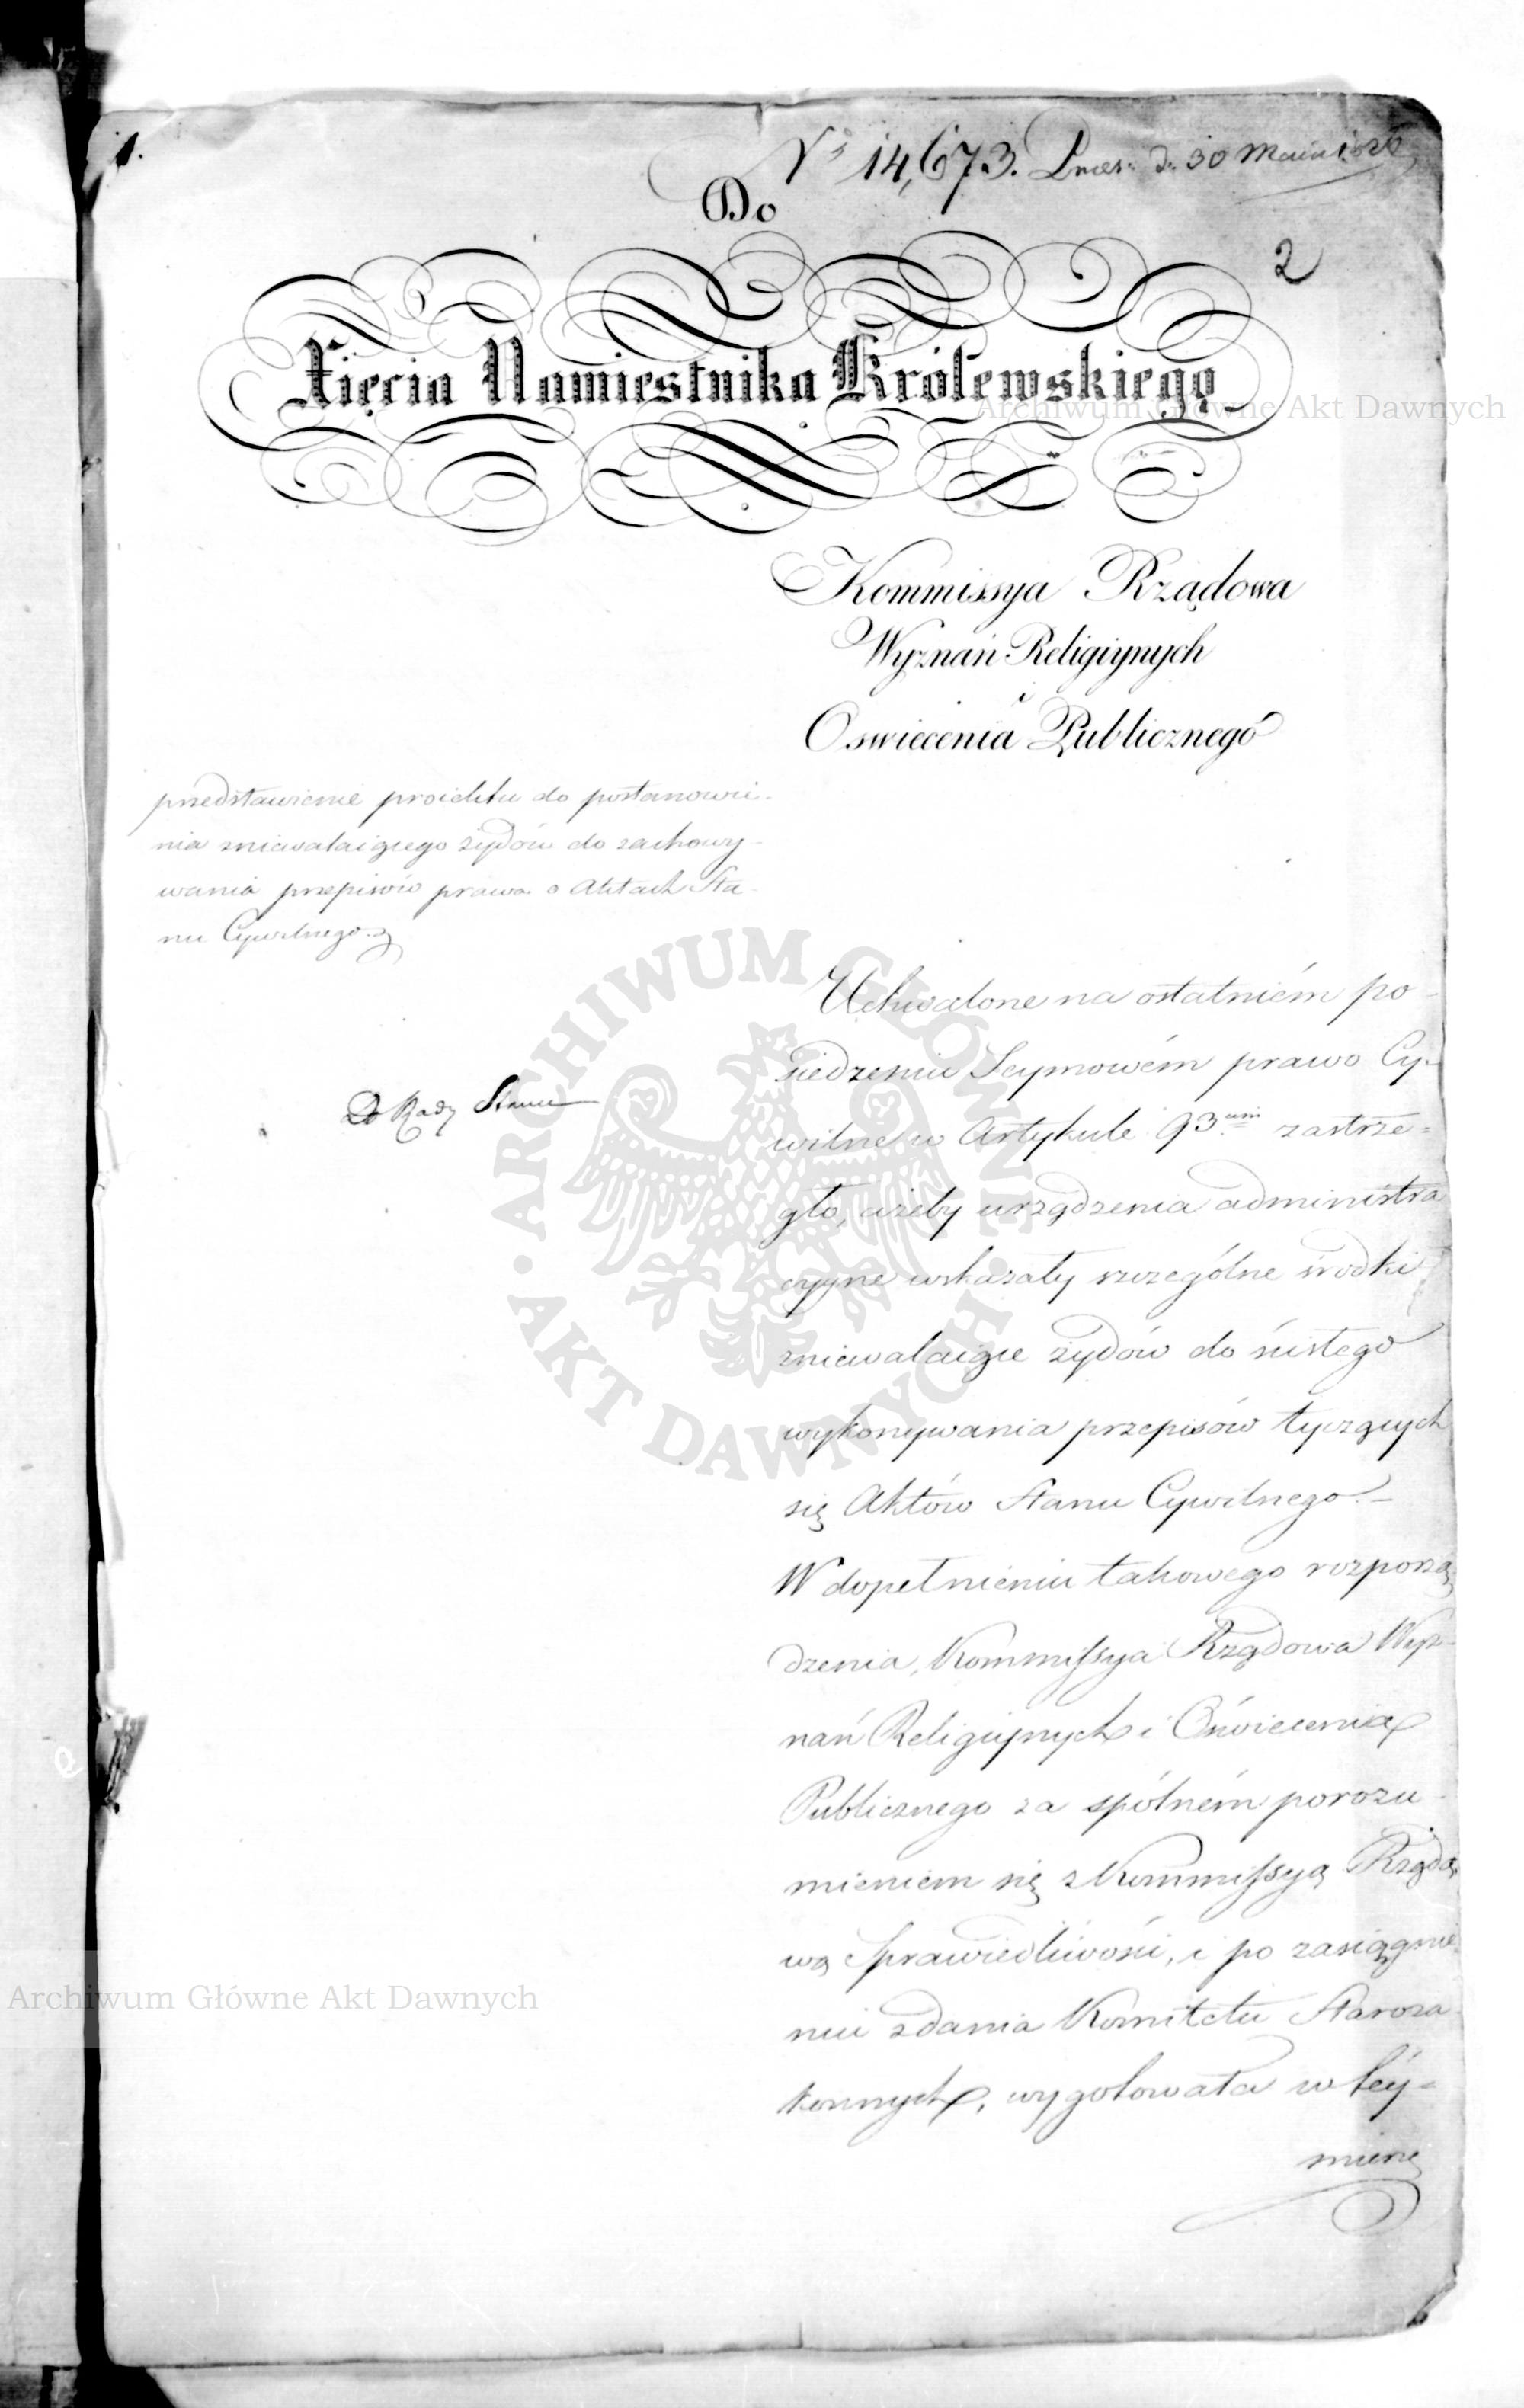 1.
Nº 14,673. Prez. d. 30 Maia
Do
2
Xięcia Namiestnika Królewskiego
Archiwum Główne Akt Dawnych
Kommissya Rządowa
Wyznań Religiynych
i
Oswiecenia Publicznego
przedstawienie proiektu do postanowie-
nia zniewalaiącego żydów do zachowy-
wania przepisów prawa o Aktach Sta-
nu Cywilnego.
ARCHIWUM GŁÓWNE AKT DAWNYCH
Do Rady Stanu
Uchwalone na ostatniém po-
siedzeniu Seymowém prawo Cy-
wilne w Artykule 93cim zastrze=
gło, ażeby urządzenia administra
cyyne wskazały szczególne środki
zniewalaiące żydów do ścisłego
wykonywania przepisów tyczących
się Aktów Stanu Cywilnego.-
W dopełnieniu takowego rozporzą
dzenia, Kommissya Rządowa Wyz-
nań Religiynych i Oświecenia
Publicznego za spólném porozu-
mieniem się z Kommissyą Rządo-
wą Sprawiedliwości, i po zasiągnie
niu zdania Komitetu Staroza-
konnych, wygotowała w téy=
mierze
Archiwum Główne Akt Dawnych